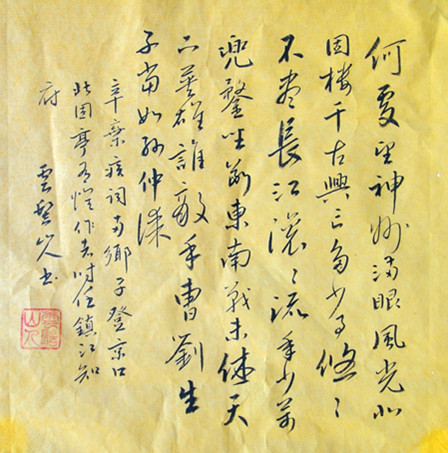 何處望神妙滿眼風光北
固樓千古興亡多少事悠〻
不盡長江滾〻流年少萬
兜鍪坐斷東南戰未休天
下英雄誰敵手曹劉生
子當如孫仲謀
辛棄疾詞南鄉子登京口
北固亭有懷作者時任鎮江知
府 雲書